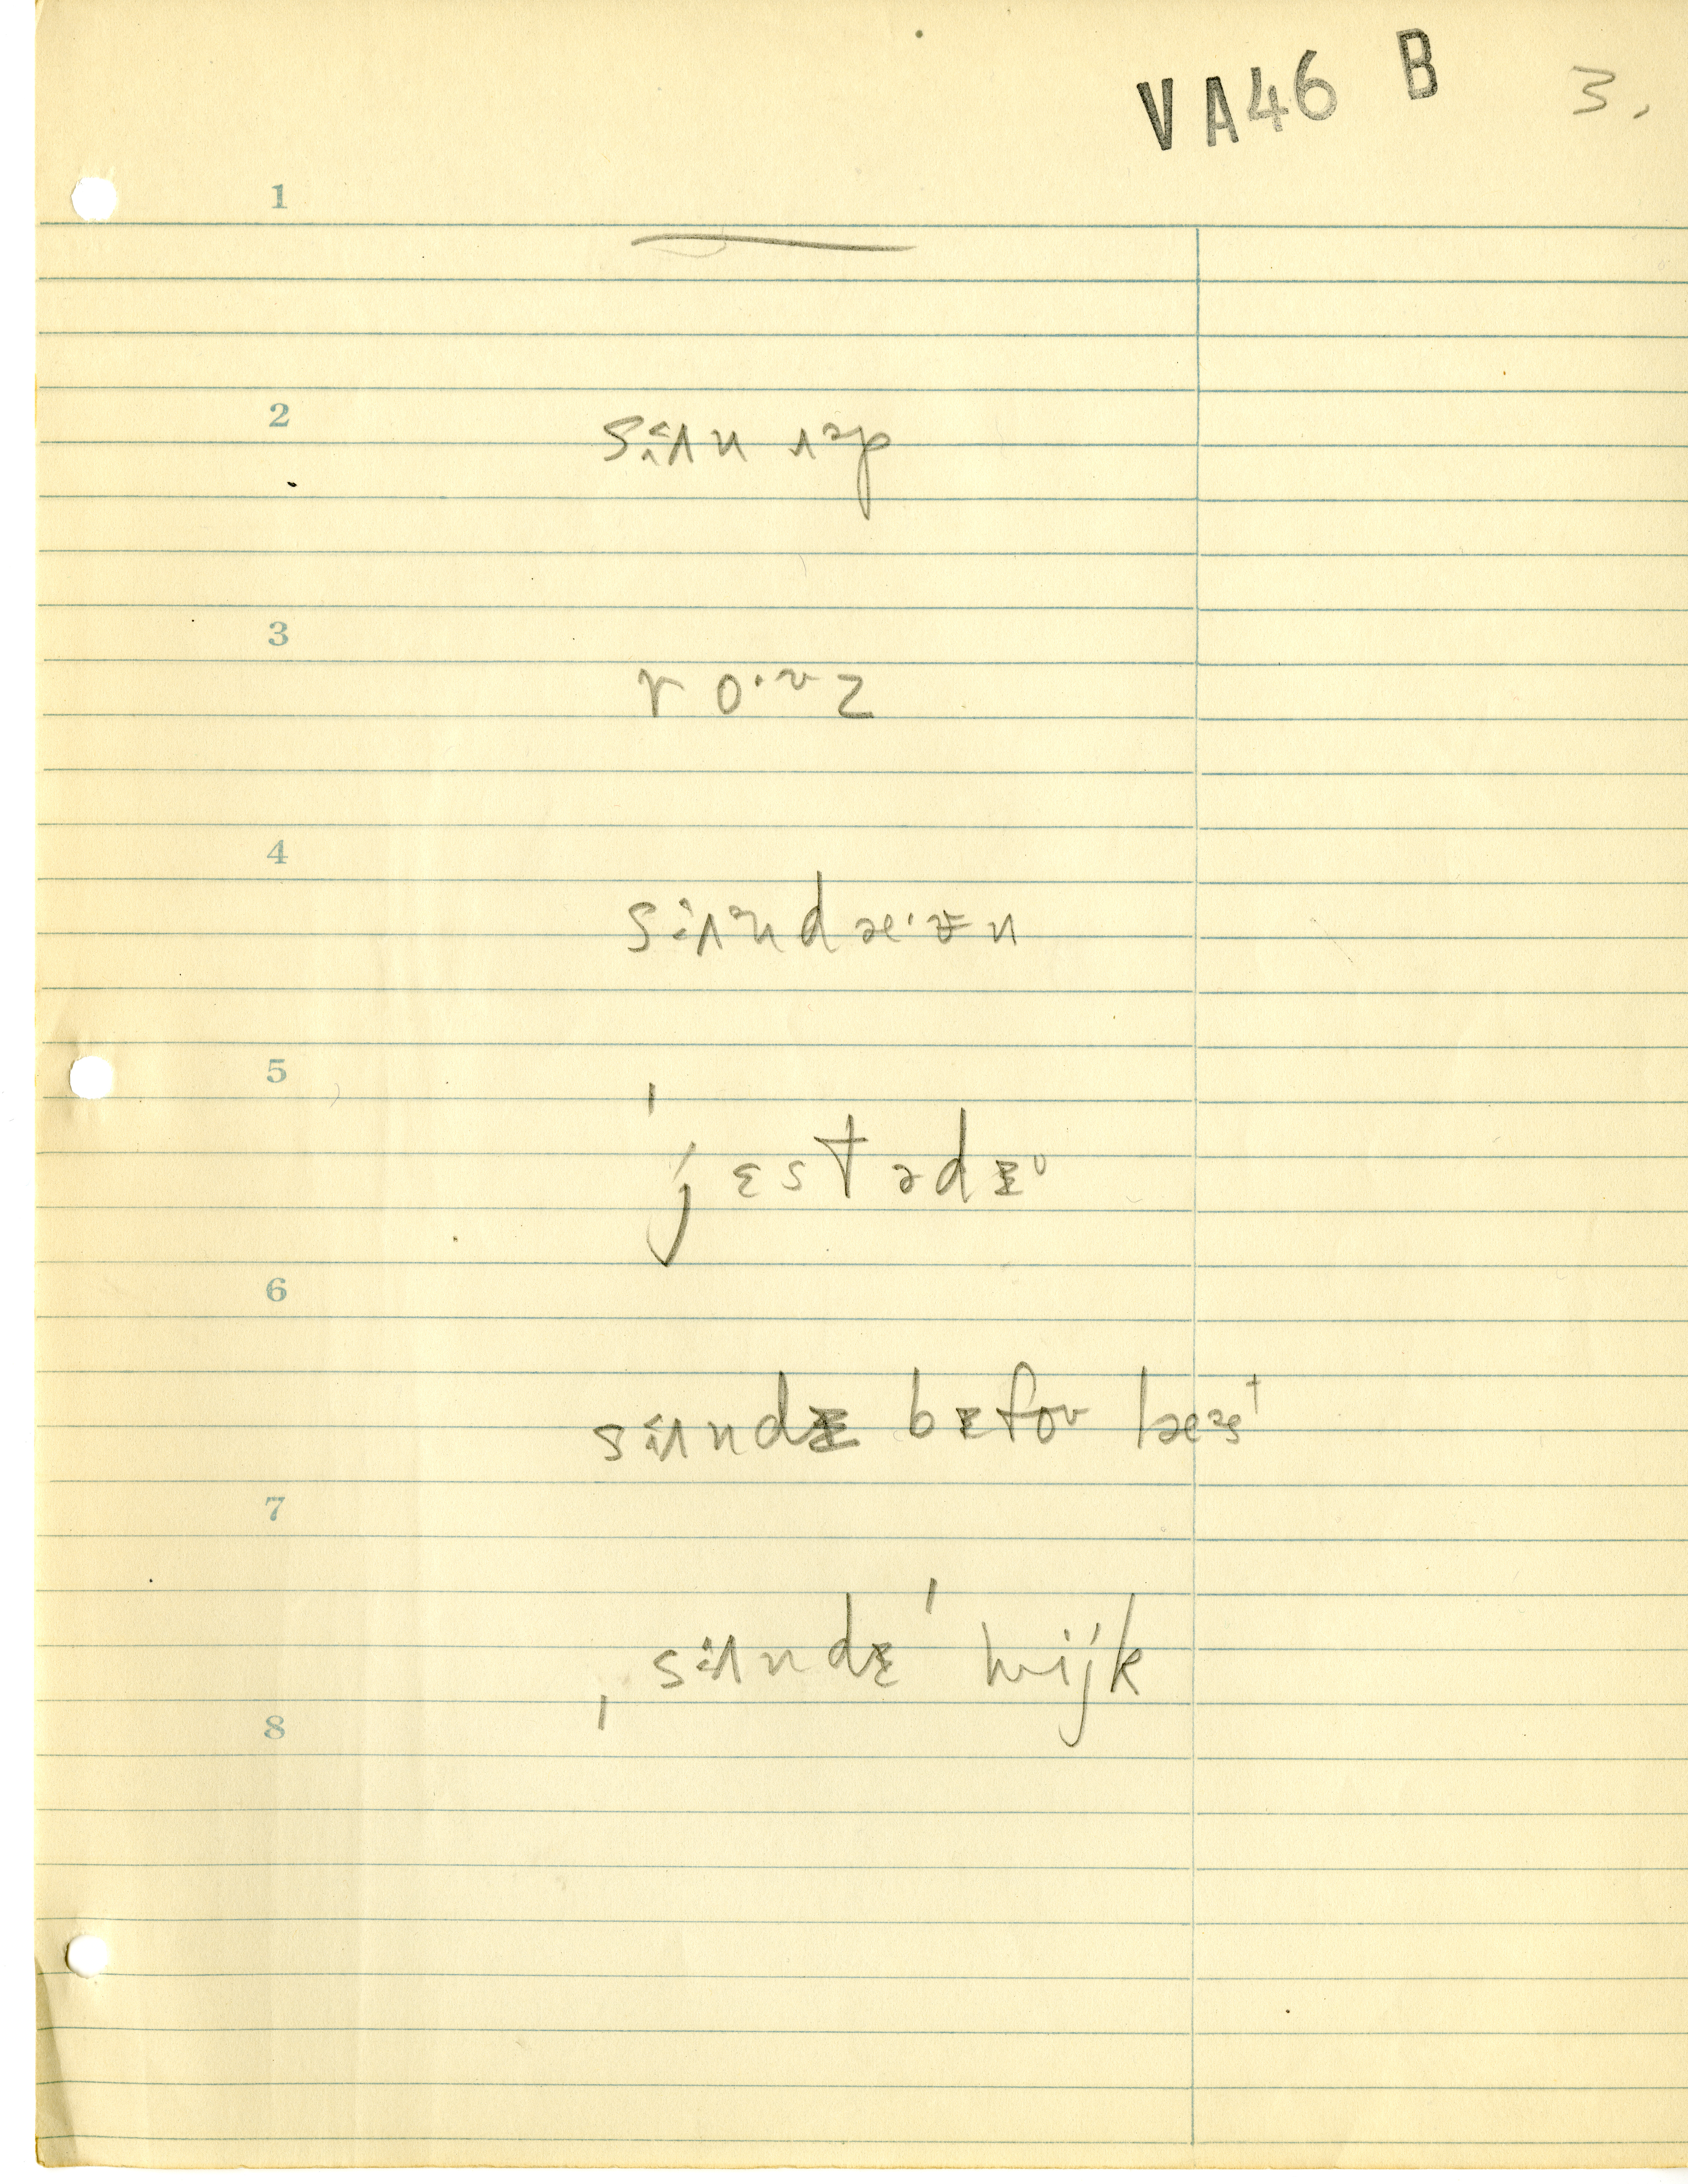 VA46 B 3.
1
2 sɨʌn ʌəp
3 ro·ʊz
4 sɨʌndæ·ɪn
5 'jɛstədɪ
6 sɨʌndɪ bɪfoʊ læst
7 ˌsɨʌndɪ' wijk
8